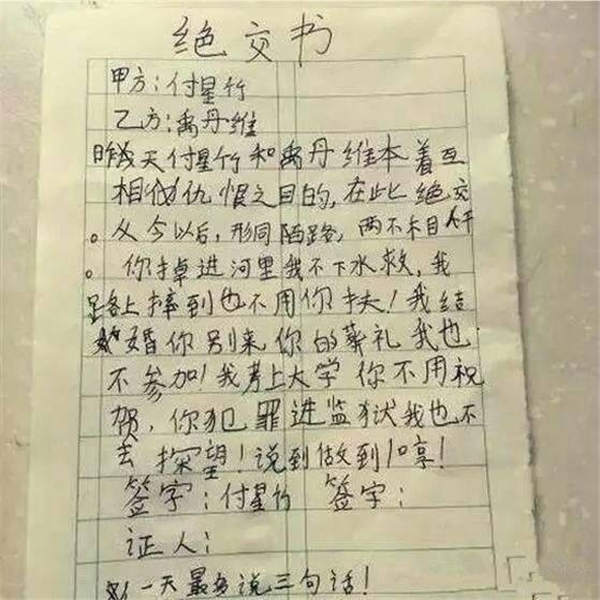 绝交书
甲方:付星竹
乙方:禹丹维
昨天付星竹和禹丹维本着互
相仇恨之目的,在此绝交
。从今以后,形同陌路,两不相干
。你掉进河里我不下水救,我
路上摔到也不用你扶!我结
婚你别来你的葬礼我也
不参加!我考上大学你不用祝
贺,你犯罪进监狱我也不
去探望!说到做到!哼!
签字:付星竹 签字:
证人:
一天最多说三句话!